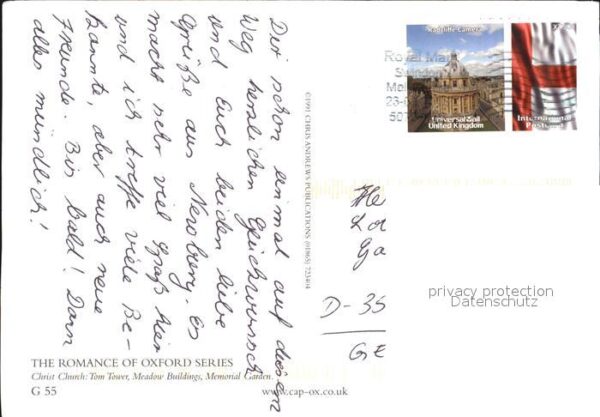 Dir schon einmal auf diesem
Weg herzlichen Glückwunsch
und Euch beiden liebe
Grüße aus Newberg. Es
macht sehr viel Spaß hier
und ich treffe viele Be-
kannte, aber auch neue
Freunde. Bis bald! Dann
alles mündlich!
Radcliffe Camera
Universal Mail
United Kingdom
International
Postcard
Royal Mail
Swindon
©1991 CHRIS ANDREWS PUBLICATIONS (01865) 723404
D-35
GE
privacy protection
Datenschutz
THE ROMANCE OF OXFORD SERIES
Christ Church: Tom Tower, Meadow Buildings, Memorial Garden.
G 55
www.cap-ox.co.uk